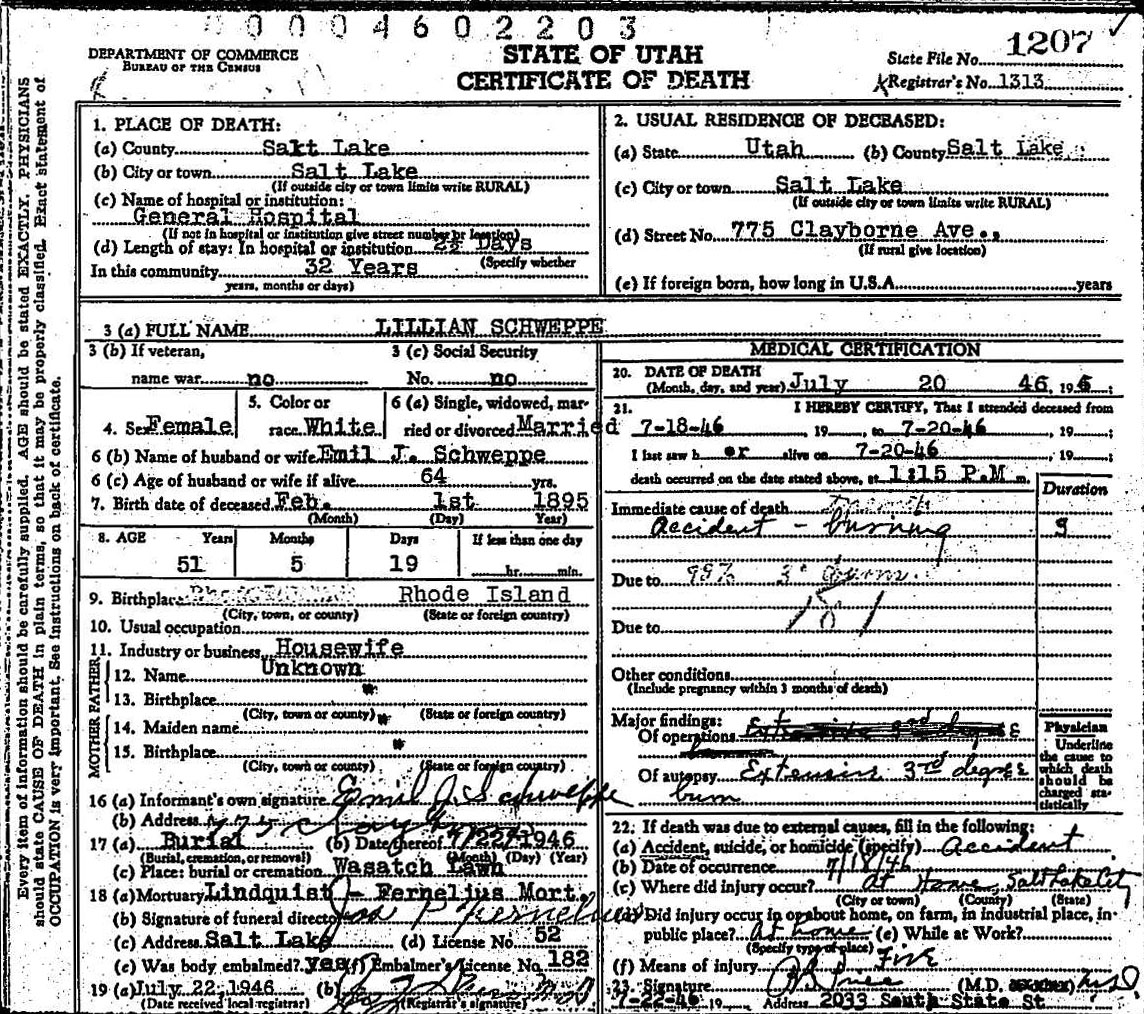 0 0 0 4 6 0 2 2 0 3
DEPARTMENT OF COMMERCE
BUREAU OF THE CENSUS
STATE OF UTAH
CERTIFICATE OF DEATH
State File No. 1207
Registrar's No. 1313
Every item of information should be carefully supplied. AGE should be stated EXACTLY. PHYSICIANS
should state CAUSE OF DEATH in plain terms, so that it may be properly classified. Exact statement of
OCCUPATION is very important. See instructions on back of certificate.
1. PLACE OF DEATH:
(a) County Salt Lake
(b) City or town Salt Lake
(If outside city or town limits write RURAL)
(c) Name of hospital or institution:
General Hospital
(If not in hospital or institution give street number or location)
(d) Length of stay: In hospital or institution 2½ Days
(Specify whether
In this community 32 Years
years, months or days)
2. USUAL RESIDENCE OF DECEASED:
(a) State Utah (b) County Salt Lake
(c) City or town Salt Lake
(If outside city or town limits write RURAL)
(d) Street No. 775 Clayborne Ave.,
(If rural give location)
(e) If foreign born, how long in U.S.A. years
3 (a) FULL NAME LILLIAN SCHWEPPE
3 (b) If veteran,
name war no
3 (c) Social Security
No. no
4. Sex Female
5. Color or
race White
6 (a) Single, widowed, mar-
ried or divorced Married
6 (b) Name of husband or wife Emil J. Schweppe
6 (c) Age of husband or wife if alive 64 yrs.
7. Birth date of deceased Feb. 1st 1895
(Month) (Day) Year)
8. AGE Years Months Days If less than one day
51 5 19 hr. min.
9. Birthplace Rhode Island
(City, town, or county) (State or foreign country)
10. Usual occupation
11. Industry or business Housewife
FATHER
12. Name Unknown
13. Birthplace "
(City, town or county) (State or foreign country)
MOTHER
14. Maiden name "
15. Birthplace "
(City, town or county) (State or foreign country)
16 (a) Informant's own signature Emil J. Schweppe
(b) Address 775
17 (a) Burial (b) Date thereof 7/22/1946
(Burial, cremation, or removal) (Month) (Day) (Year)
(c) Place: burial or cremation Wasatch Lawn
18 (a) Mortuary Lindquist - Fernelius Mort.
(b) Signature of funeral director P Fernelius
(c) Address Salt Lake (d) License No. 52
(e) Was body embalmed? yes (f) Embalmer's License No. 182
19 (a) July 22, 1946 (b)
(Date received local registrar) (Registrar's signature)
MEDICAL CERTIFICATION
20. DATE OF DEATH
(Month, day, and year) July 20 46, 19
21. I HEREBY CERTIFY, That I attended deceased from
7-18-46, 19 , to 7-20-46, 19 ;
I last saw her alive on 7-20-46, 19 ;
death occurred on the date stated above, at 1:15 P.M m.
Duration
Immediate cause of death
Accident - burning
Due to 99% 3°
181
Due to
Other conditions
(Include pregnancy within 3 months of death)
Major findings:
Of operations
Of autopsy Extensive 3rd degree
burn
Physician
Underline
the cause to
which death
should be
charged sta-
tistically
22. If death was due to external causes, fill in the following:
(a) Accident, suicide, or homicide (specify) Accident
(b) Date of occurrence 7/18/46
(c) Where did injury occur? At Home, Salt Lake City
(City or town) (County) (State)
(d) Did injury occur in or about home, on farm, in industrial place, in-
public place? At home (e) While at Work?
(Specify type of place)
(f) Means of injury Fire
23. Signature Price (M.D. M.D.
7-22-46 19 Address 2033 South State St